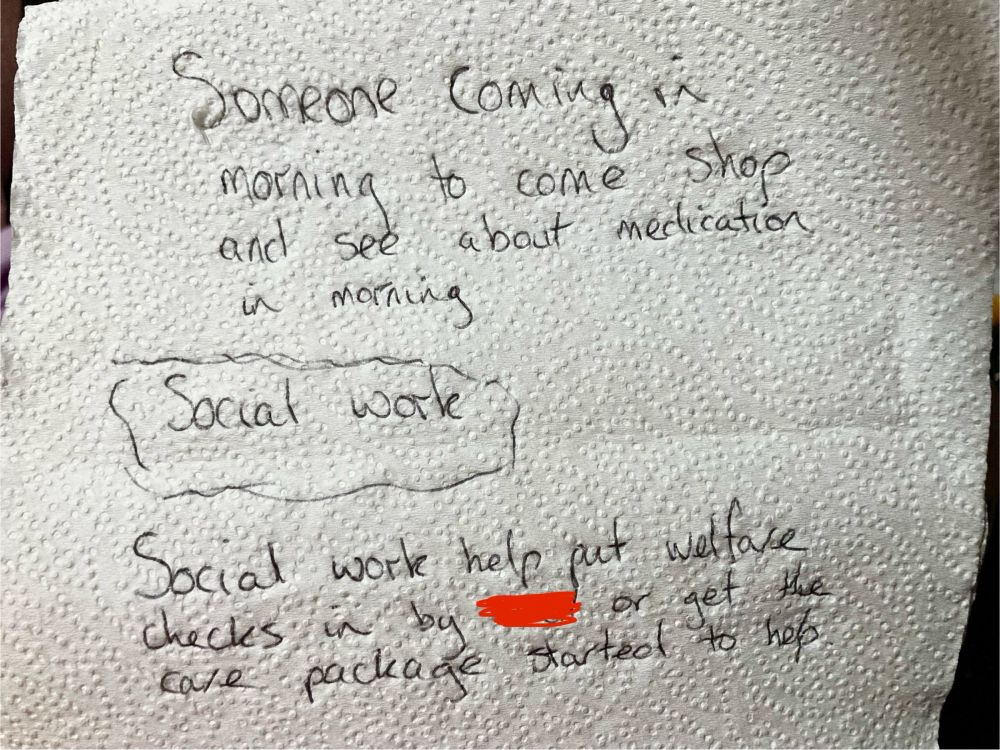 Someone coming in
morning to come shop
and see about medication
in morning
Social work
Social work help put welfare
checks in by or get the
care package started to help